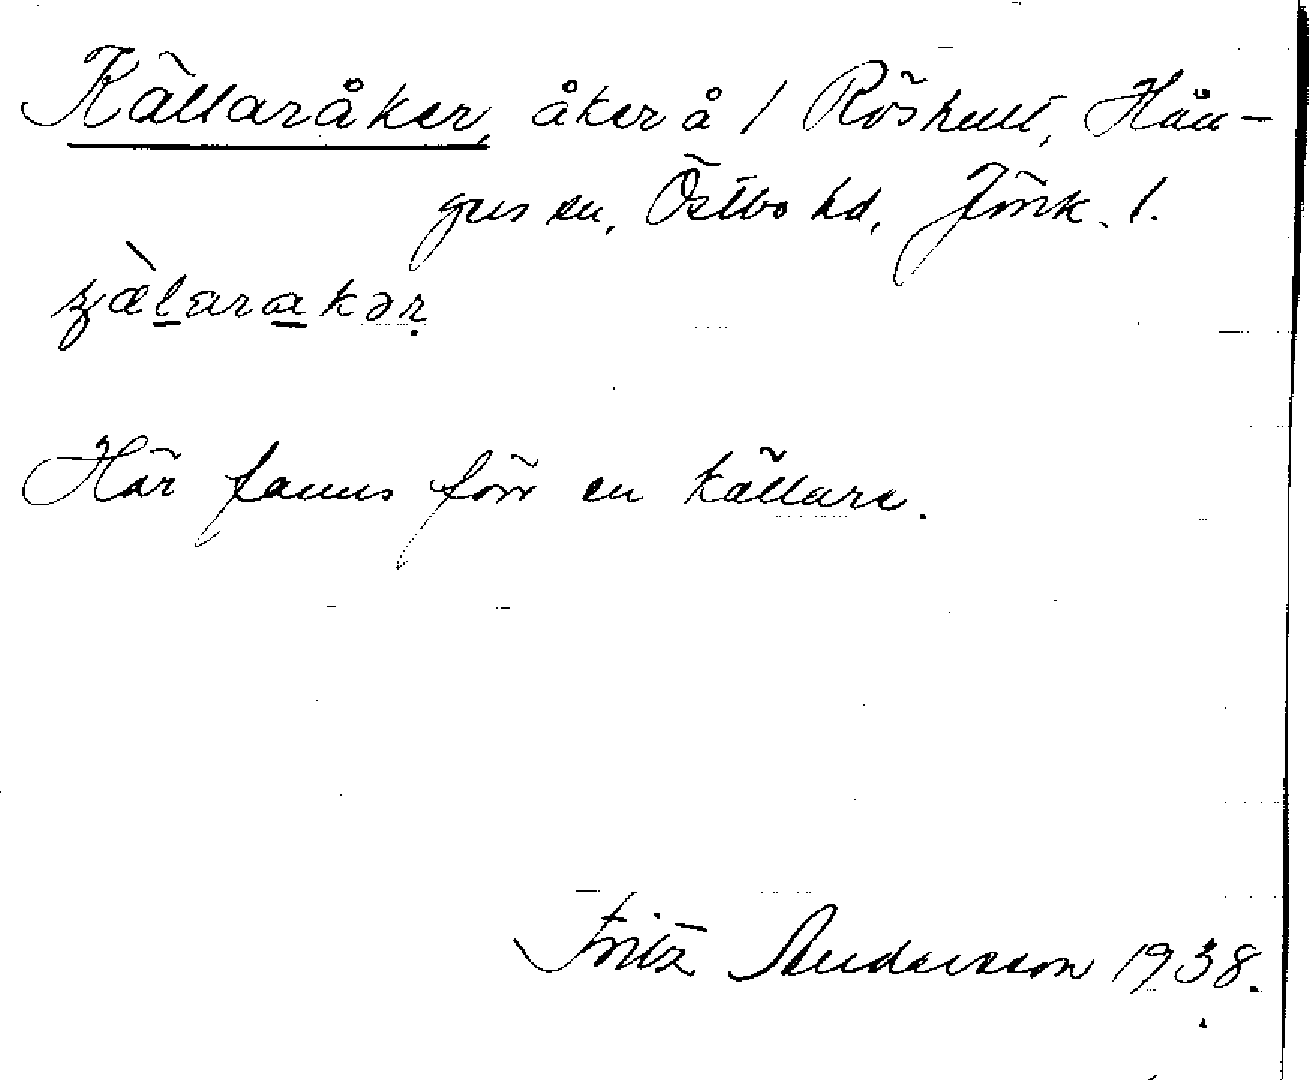 Källaråker, åker å 1 Röshult, Hån-
ger sn, Östbo hd, Jönk. l.
Här fanns förr en källare.
Fritz Andersson 1938.